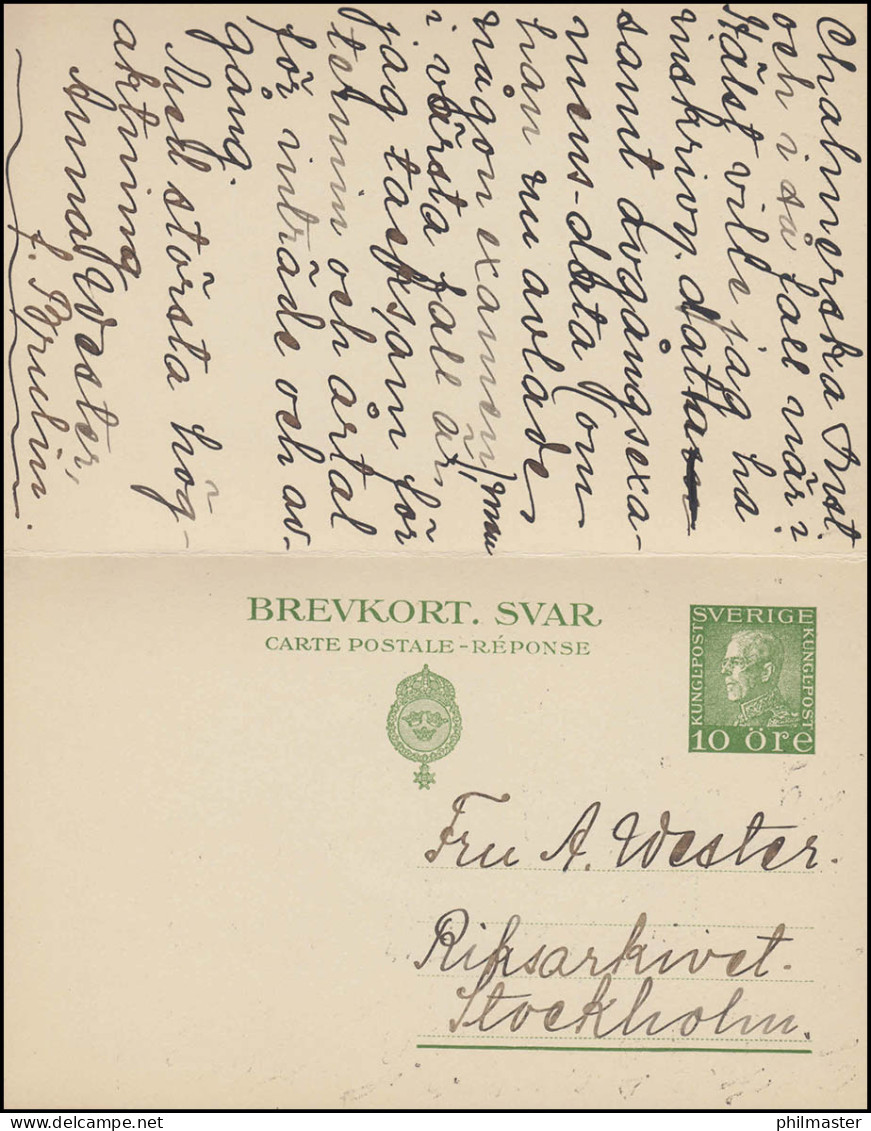 Chalmerska Inst.
och i så fall när?
Hälst ville jag ha
inskrivn. datum
samt avgångsexa-
mens-data (om
han nu avlade
någon examen), men
i värsta fall är
jag tacksam för
termin och årtal
för inträde och av-
gång.
Med största hög-
aktning
Anna Wester,
f. Brulin.
BREVKORT. SVAR
CARTE POSTALE-RÉPONSE
SVERIGE
KUNGL·POST
KUNGL·POST
10 öre
Fru A. Wester.
Riksarkivet.
Stockholm.
www.delcampe.net
philmaster